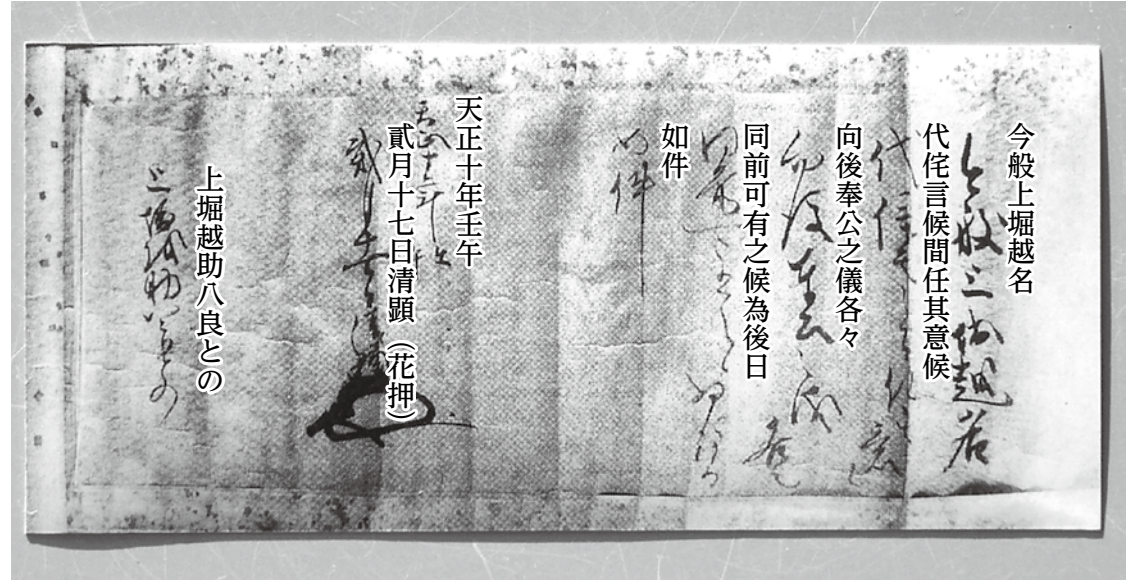 今般上堀越名
代侘言候間任其意候
向後奉公之儀各々
同前可有之候為後日
如件
天正十年壬午
貳月十七日清顕（花押）
上堀越助八良との